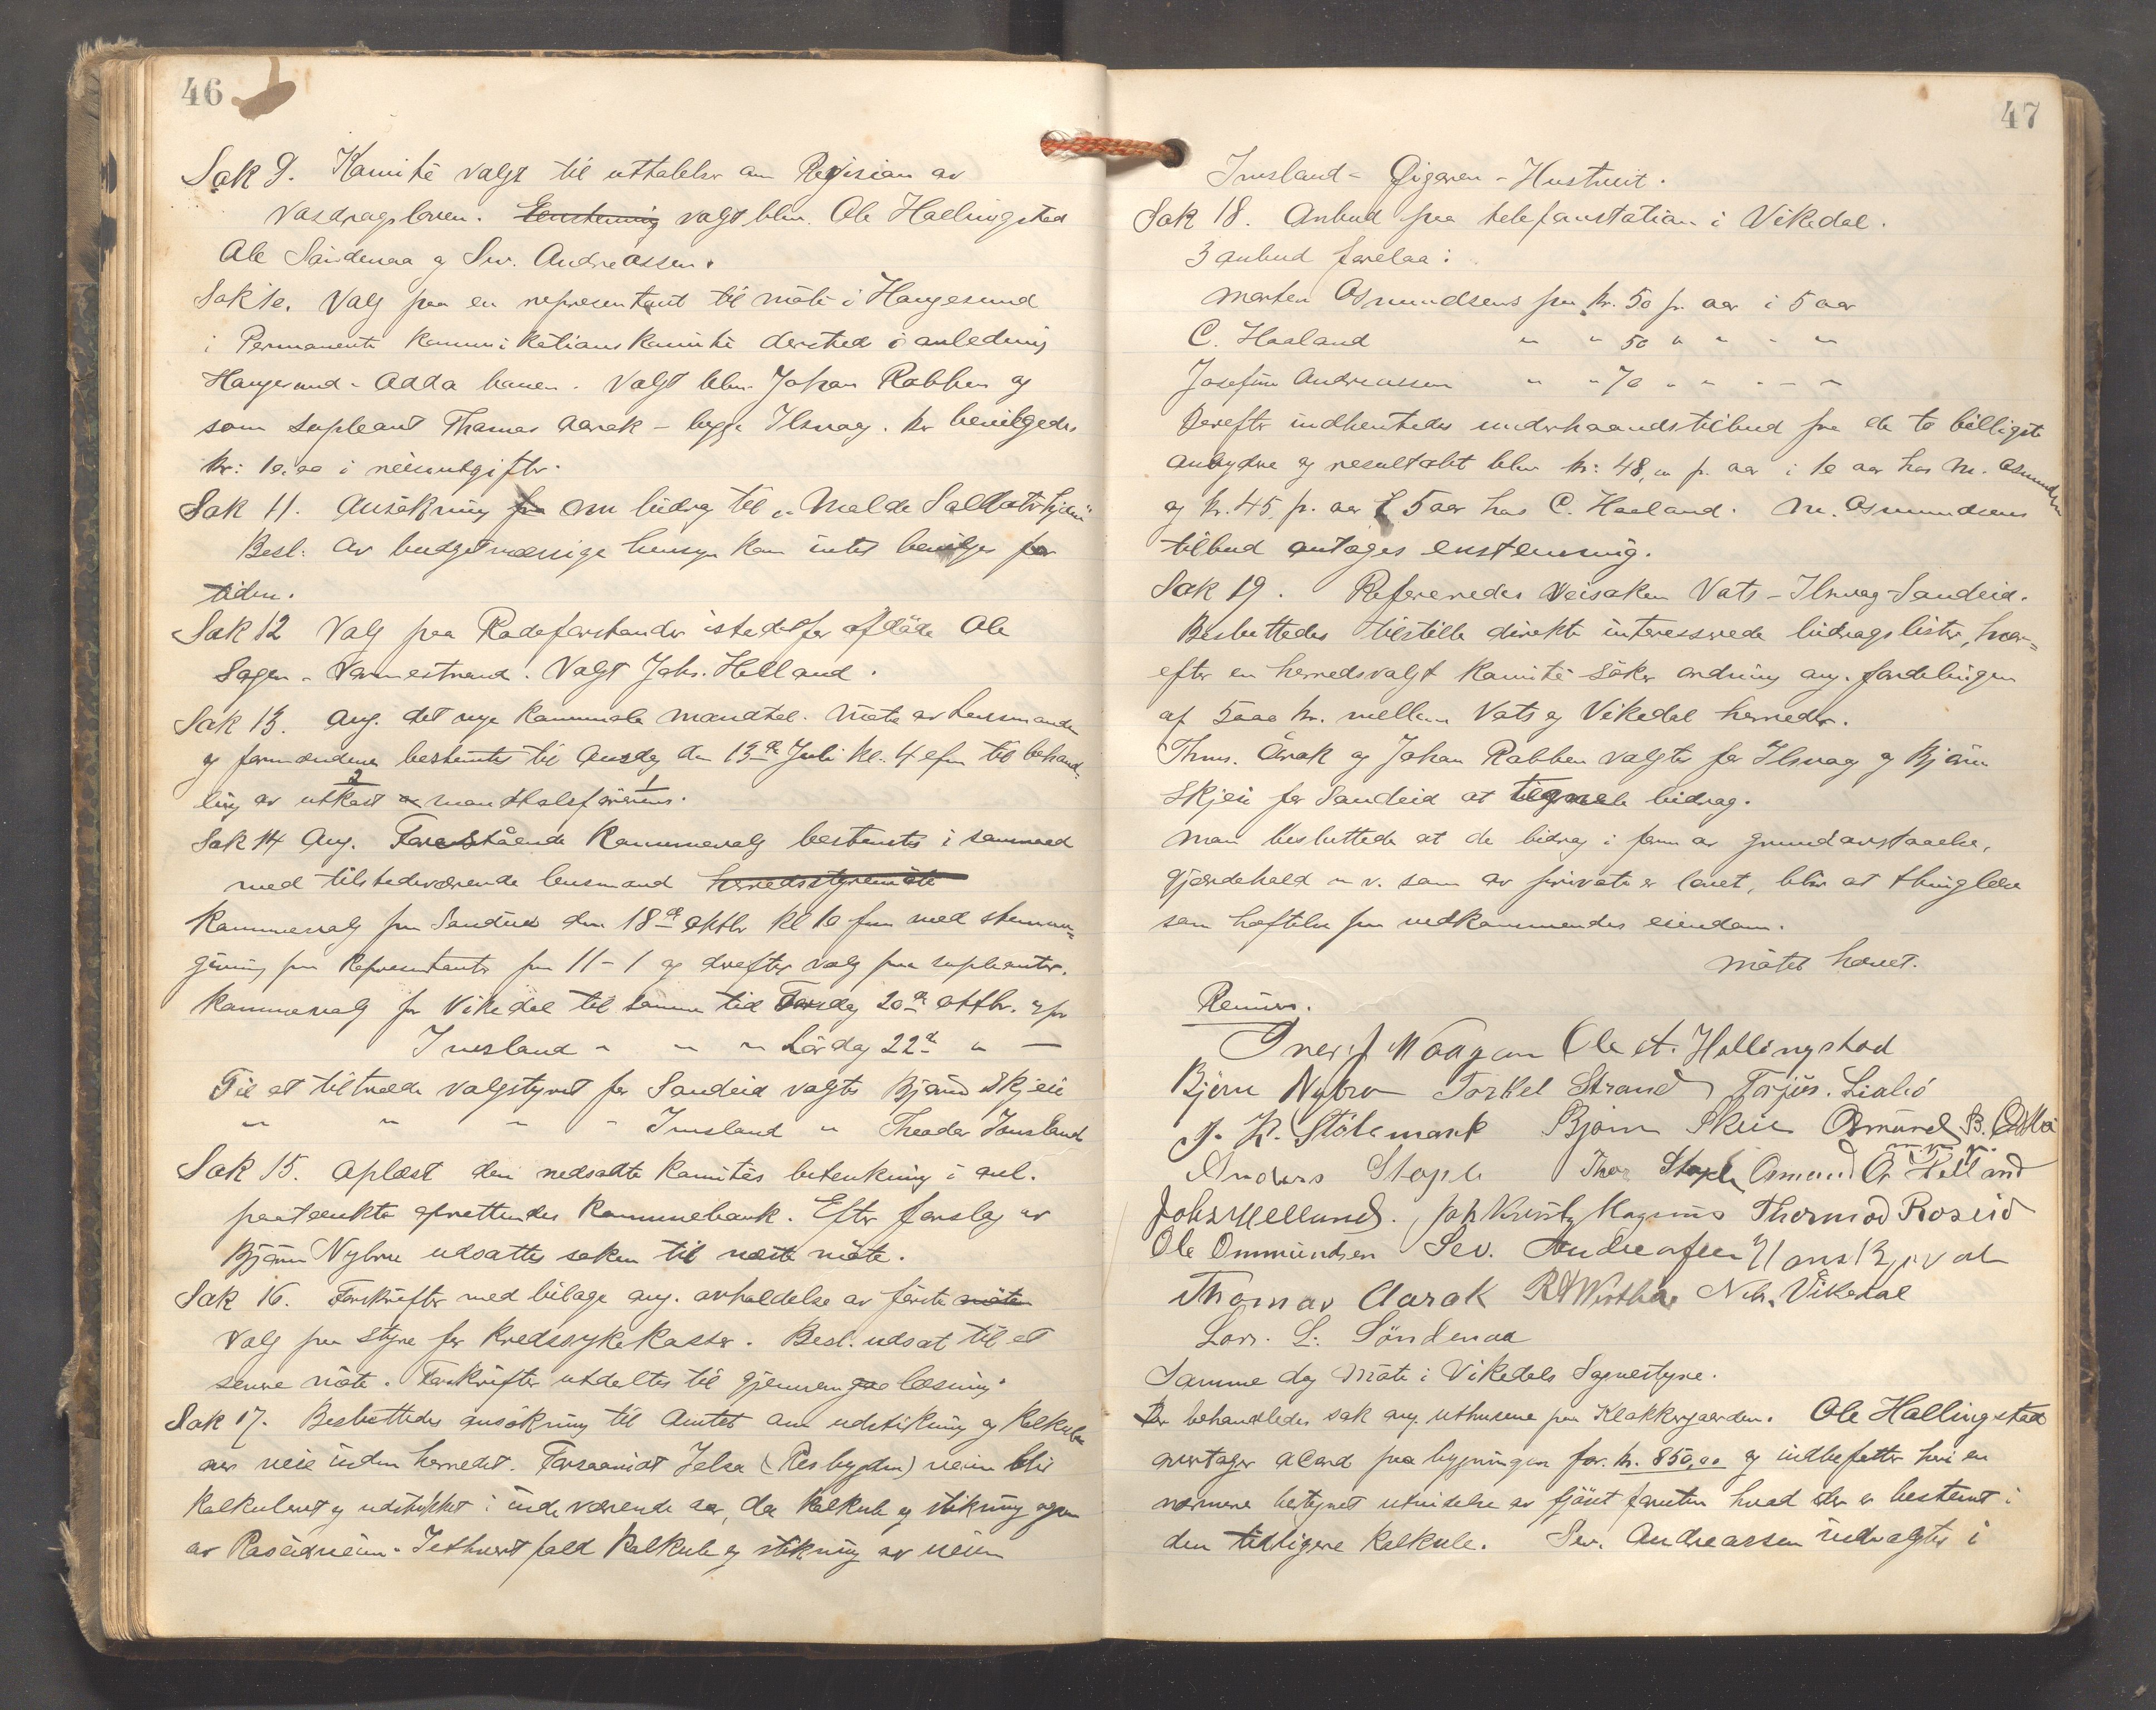 46
Sak 9. Kamite valgt til uttalelse om Revisian av
Vasdragsloven. Enstemmig valgt blev. Ole Hallingstad
Ole Söndenaa og Sev. Andreassen.
Sak 10. Valg paa en representant til möte i Haugesund
i Permanente kammikatians kamite dersted i anledning
Haugesund - Odda banen. Valgt blev Johan Rabben og
som supleant Thamas Aarak - begge Ilsvag. Der bevilgedes
kr: 10.00 i reiseutgifter.
Sak 11. Ansökning fra om bidrag til "Malde Saldaterhjem"
Besl. Av budgetmæssige hensyn kan intet bevilges for
tiden.
Sak 12 Valg paa Rodeforstander istedetfor afdöde Ole
Sagen - Vannestrand. Valgt Johs. Helland.
Sak 13. Ang. det nye kammunale mandtal. Möte av lensmanden
og formændene bestemtes til Onsdag den 13de Juli kl. 4 efm til behand-
ling av utkast av mandtalsförerens.
Sak 14 Ang. Forestående Kammunevalg bestemtes i samraad
med tilstedeværende lensmand herredsstyremöte
Kammunevalg for Sandeid den 18de oktbr kl 10 fm med stemme-
givning paa Representanter fra 11-1 og derefter valg paa supleanter.
Kammunevalg for Vikedal til samme tid Torsdag 20de oktbr. og for
Imsland " " " Lördag 22de " —
Til at tiltræde valgstyret for Sandeid valgtes Bjørn Skjeie
" " " " Imsland " Theodor Imsland
Sak 15. Oplæst den nedsatte kamites betenkning i anl.
paatænkte oprettendes Kammunebank. Efter forslag av
Bjørn Nybru udsattes saken til næste möte.
Sak 16. Forskrifter med bilage ang. avholdelse av förste möte
valg paa styre for kredssykekasser. Besl. udsat til et
senere möte. Forskrifter utdeltes til gjennemgaa læsning.
Sak 17. Besluttedes ansökning til Amtet om udstikning og kalkule
over veie inden herredet. Forsaavidt Jelsa (Resbygden) veien blir
kalkuleret og udstukket i indeværende aar, da kalkule og stikning ogsaa
av Roseidveien. I ethvert fald kalkule og stikning av veien
47
Imsland - Öigaren - Hustveit.
Sak 18. Anbud paa telefanstatian i Vikedal.
3 anbud forelaa:
Morten Osmundsens paa kr. 50 pr. aar i 5 aar
C. Haaland " " 50 " " " "
Josefine Andreassen " " 70 " " " "
Derefter indhentedes underhaandstilbud fra de to billigste
anbydere og resultatet blev kr: 48,00 pr. aar i 10 aar hos M. Osmundsen
og kr. 45 pr. aar i 5 aar hos C. Haaland. M. Osmundsens
tilbud antoges enstemmig.
Sak 19. Refereredes Veisaken Vats - Ilsvag - Sandeid.
Besluttedes tilstille direkte interesserede bidragslister, hvor-
efter en herredsvalgt kamite söker ordning ang. fordelingen
af 5000 kr. mellem Vats og Vikedal herreder.
Thms. Årak og Johan Rabben valgtes for Ilsvag og Bjørn
Skjeie for Sandeid at tegne bidrag.
Man besluttede at de bidrag i form av grundavstaaelse,
gjærdehald m.v. som av private er lovet, blir at thinglæse
som heftelse paa vedkommendes eiendom.
Mötet hævet.
Ole A. Hallingstad
Björn Nybru Torkel Strand Torjus. Lialid
Bjørn Skeie Osmund B.
Anders Stople Thor Stople Osmund O. Helland
Johs Helland. Thormod Roseid
Ole Ommundsen Sev. Andreassen
Thomas Aarak Neh. Vikedal
Lars. L. Söndenaa
Samme dag Möte i Vikedals Sognestyre.
Der behandledes sak ang. uthusene paa Klakkergaarden. Ole Hallingstad
overtager acord paa bygningen for kr. 850,00 og indbefatter heri en
nærmere betegnet utvidelse av fjöset foruten hvad der er bestemt i
den tidligere kalkule. Sev. Andreassen indvalgtes i